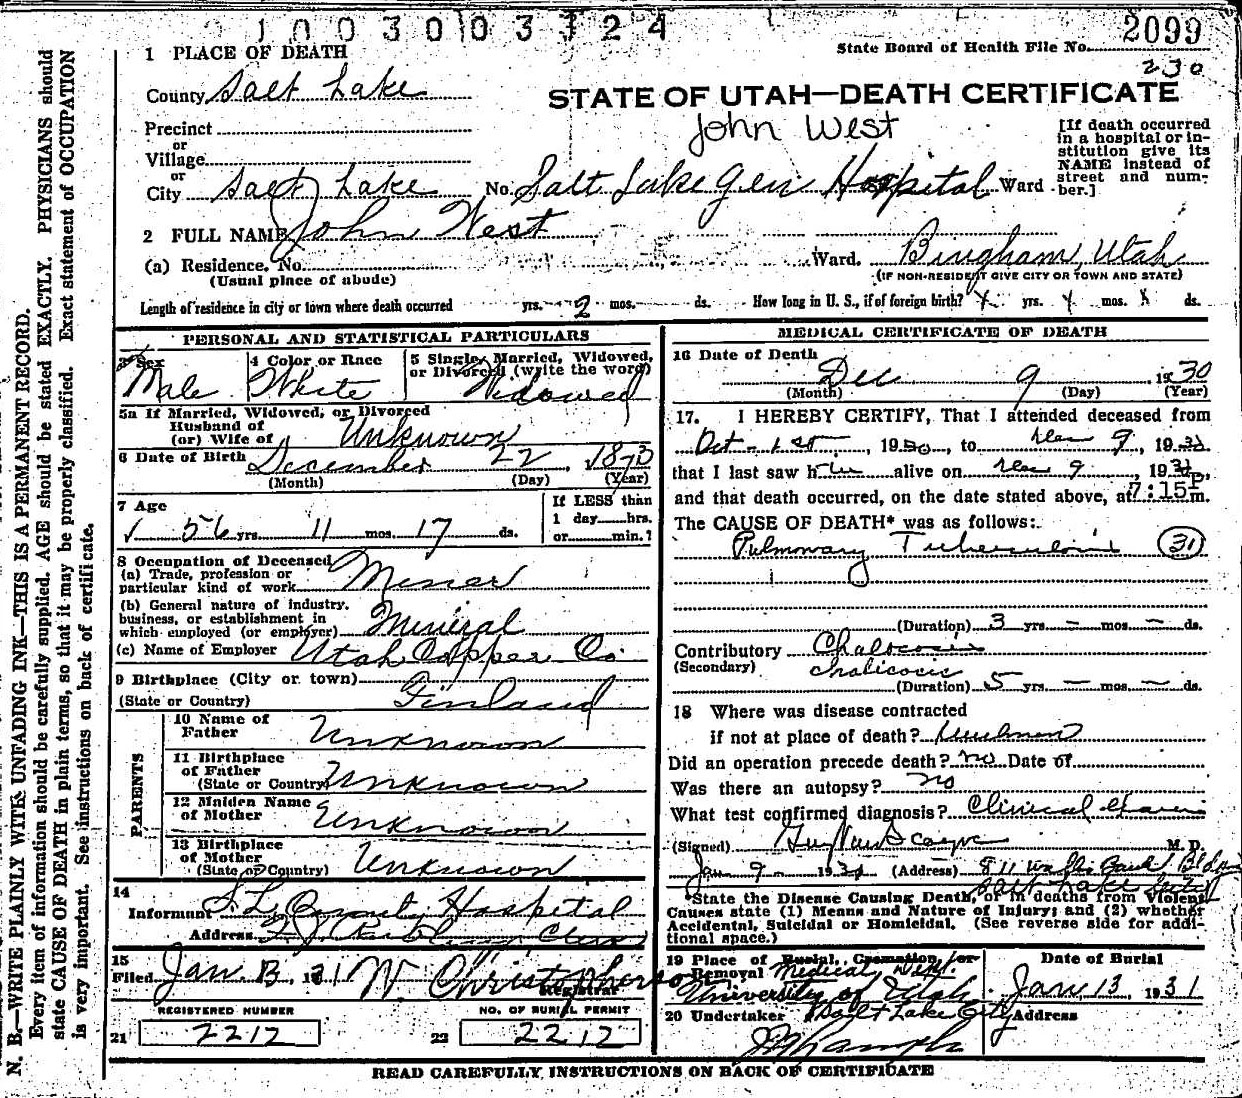 1003003324
2099
State Board of Health File No.
230
1 PLACE OF DEATH
County Salt Lake
STATE OF UTAH—DEATH CERTIFICATE
John West
Precinct
or
Village
or
City Salt Lake No. Salt Lake Gen Hospital Ward
[If death occurred
in a hospital or in-
stitution give its
NAME instead of
street and num-
ber.]
2 FULL NAME John West
(a) Residence. No. Ward. Bingham, Utah
(Usual place of abode) (IF NON-RESIDENT GIVE CITY OR TOWN AND STATE)
Length of residence in city or town where death occurred yrs. 2 mos. ds. How long in U. S., if of foreign birth? yrs. mos. ds.
PERSONAL AND STATISTICAL PARTICULARS
3 Sex
Male
4 Color or Race
White
5 Single, Married, Widowed,
or Divorced (write the word)
Widowed
5a If Married, Widowed, or Divorced
Husband of
(or) Wife of Unknown
6 Date of Birth December 22, 1873
(Month) (Day) (Year)
7 Age
56 yrs. 11 mos. 17 ds.
If LESS than
1 day hrs.
or min.?
8 Occupation of Deceased
(a) Trade, profession or
particular kind of work Miner
(b) General nature of industry,
business, or establishment in
which employed (or employer) Mineral
(c) Name of Employer Utah Copper Co
9 Birthplace (City or town)
(State or Country) Finland
PARENTS
10 Name of
Father Unknown
11 Birthplace
of Father
(State or Country) Unknown
12 Maiden Name
of Mother Unknown
13 Birthplace
of Mother
(State or Country) Unknown
14
Informant S. L. County Hospital
Address
15
Filed Jan. 13, 1931 W Christopherson
Registrar
REGISTERED NUMBER
21 2212
NO. OF BURIAL PERMIT
22 2212
MEDICAL CERTIFICATE OF DEATH
16 Date of Death
Dec 9 1930
(Month) (Day) (Year)
17. I HEREBY CERTIFY, That I attended deceased from
Oct - 1st, 1930, to Dec 9, 1930
that I last saw him alive on Dec 9 1930,
and that death occurred, on the date stated above, at 7:15 P m.
The CAUSE OF DEATH* was as follows:
Pulmonary Tuberculosis 31
(Duration) 3 yrs. – mos. – ds.
Contributory Chalicosis
(Secondary) chalicosis
(Duration) 5 yrs. – mos. – ds.
18 Where was disease contracted
if not at place of death? Unknown
Did an operation precede death? no Date of
Was there an autopsy? no
What test confirmed diagnosis? Clinical
(Signed) M. D.
Jan 9 - 1931 (Address) 811 Bldg
Salt Lake
*State the Disease Causing Death, or in deaths from Violent
Causes state (1) Means and Nature of Injury; and (2) whether
Accidental, Suicidal or Homicidal. (See reverse side for addi-
tional space.)
19 Place of Burial, Cremation, or
Removal Medical Dept.
University of Utah
Date of Burial
Jan, 13, 1931
20 Undertaker Salt Lake City Address
READ CAREFULLY INSTRUCTIONS ON BACK OF CERTIFICATE
N. B.—WRITE PLAINLY WITH UNFADING INK—THIS IS A PERMANENT RECORD.
Every item of information should be carefully supplied. AGE should be stated EXACTLY. PHYSICIANS should
state CAUSE OF DEATH in plain terms, so that it may be properly classified. Exact statement of OCCUPATION
is very important. See instructions on back of certificate.